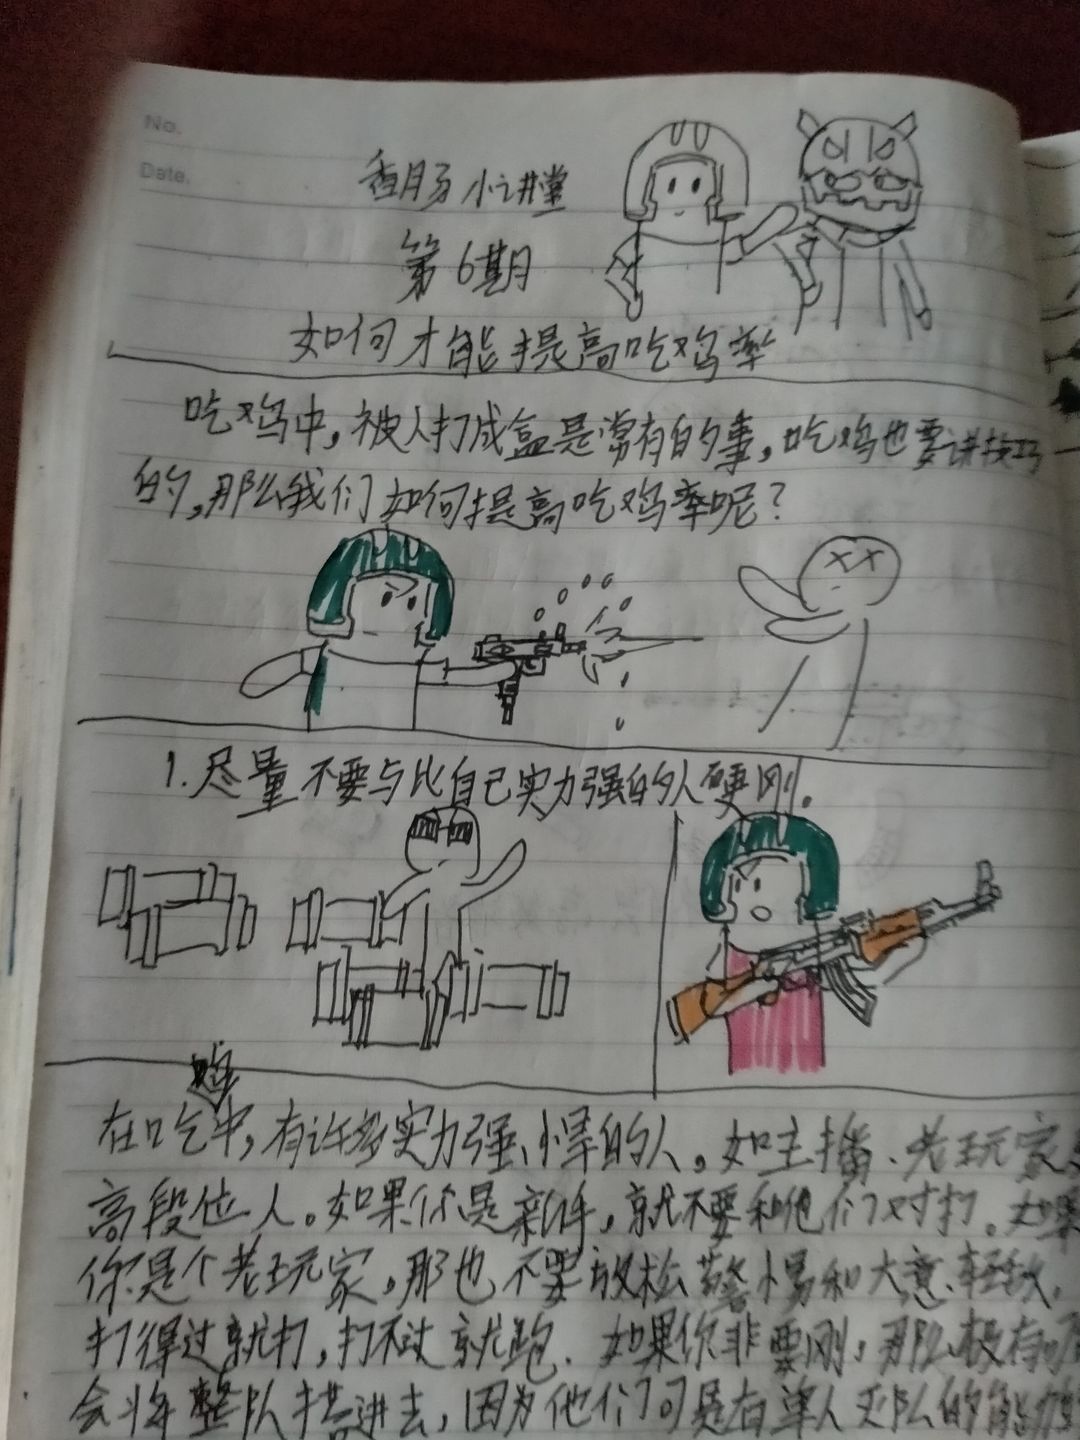 No.
Date.
香肠小讲堂
第6期
如何才能提高吃鸡率
吃鸡中,被人打成盒是常有的事,吃鸡也要讲技巧
的,那么我们如何提高吃鸡率呢?
1.尽量不要与比自己实力强的人硬刚.
鸡
在吃中,有许多实力强悍的人。如主播、老玩家
高段位人。如果你是新手,就不要和他们对打。如果
你是个老玩家,那也不要放松警惕和大意、轻敌,
打得过就打,打不过就跑.如果你非要刚,那么极有可
会将整队搭进去,因为他们可是有单人灭队的能